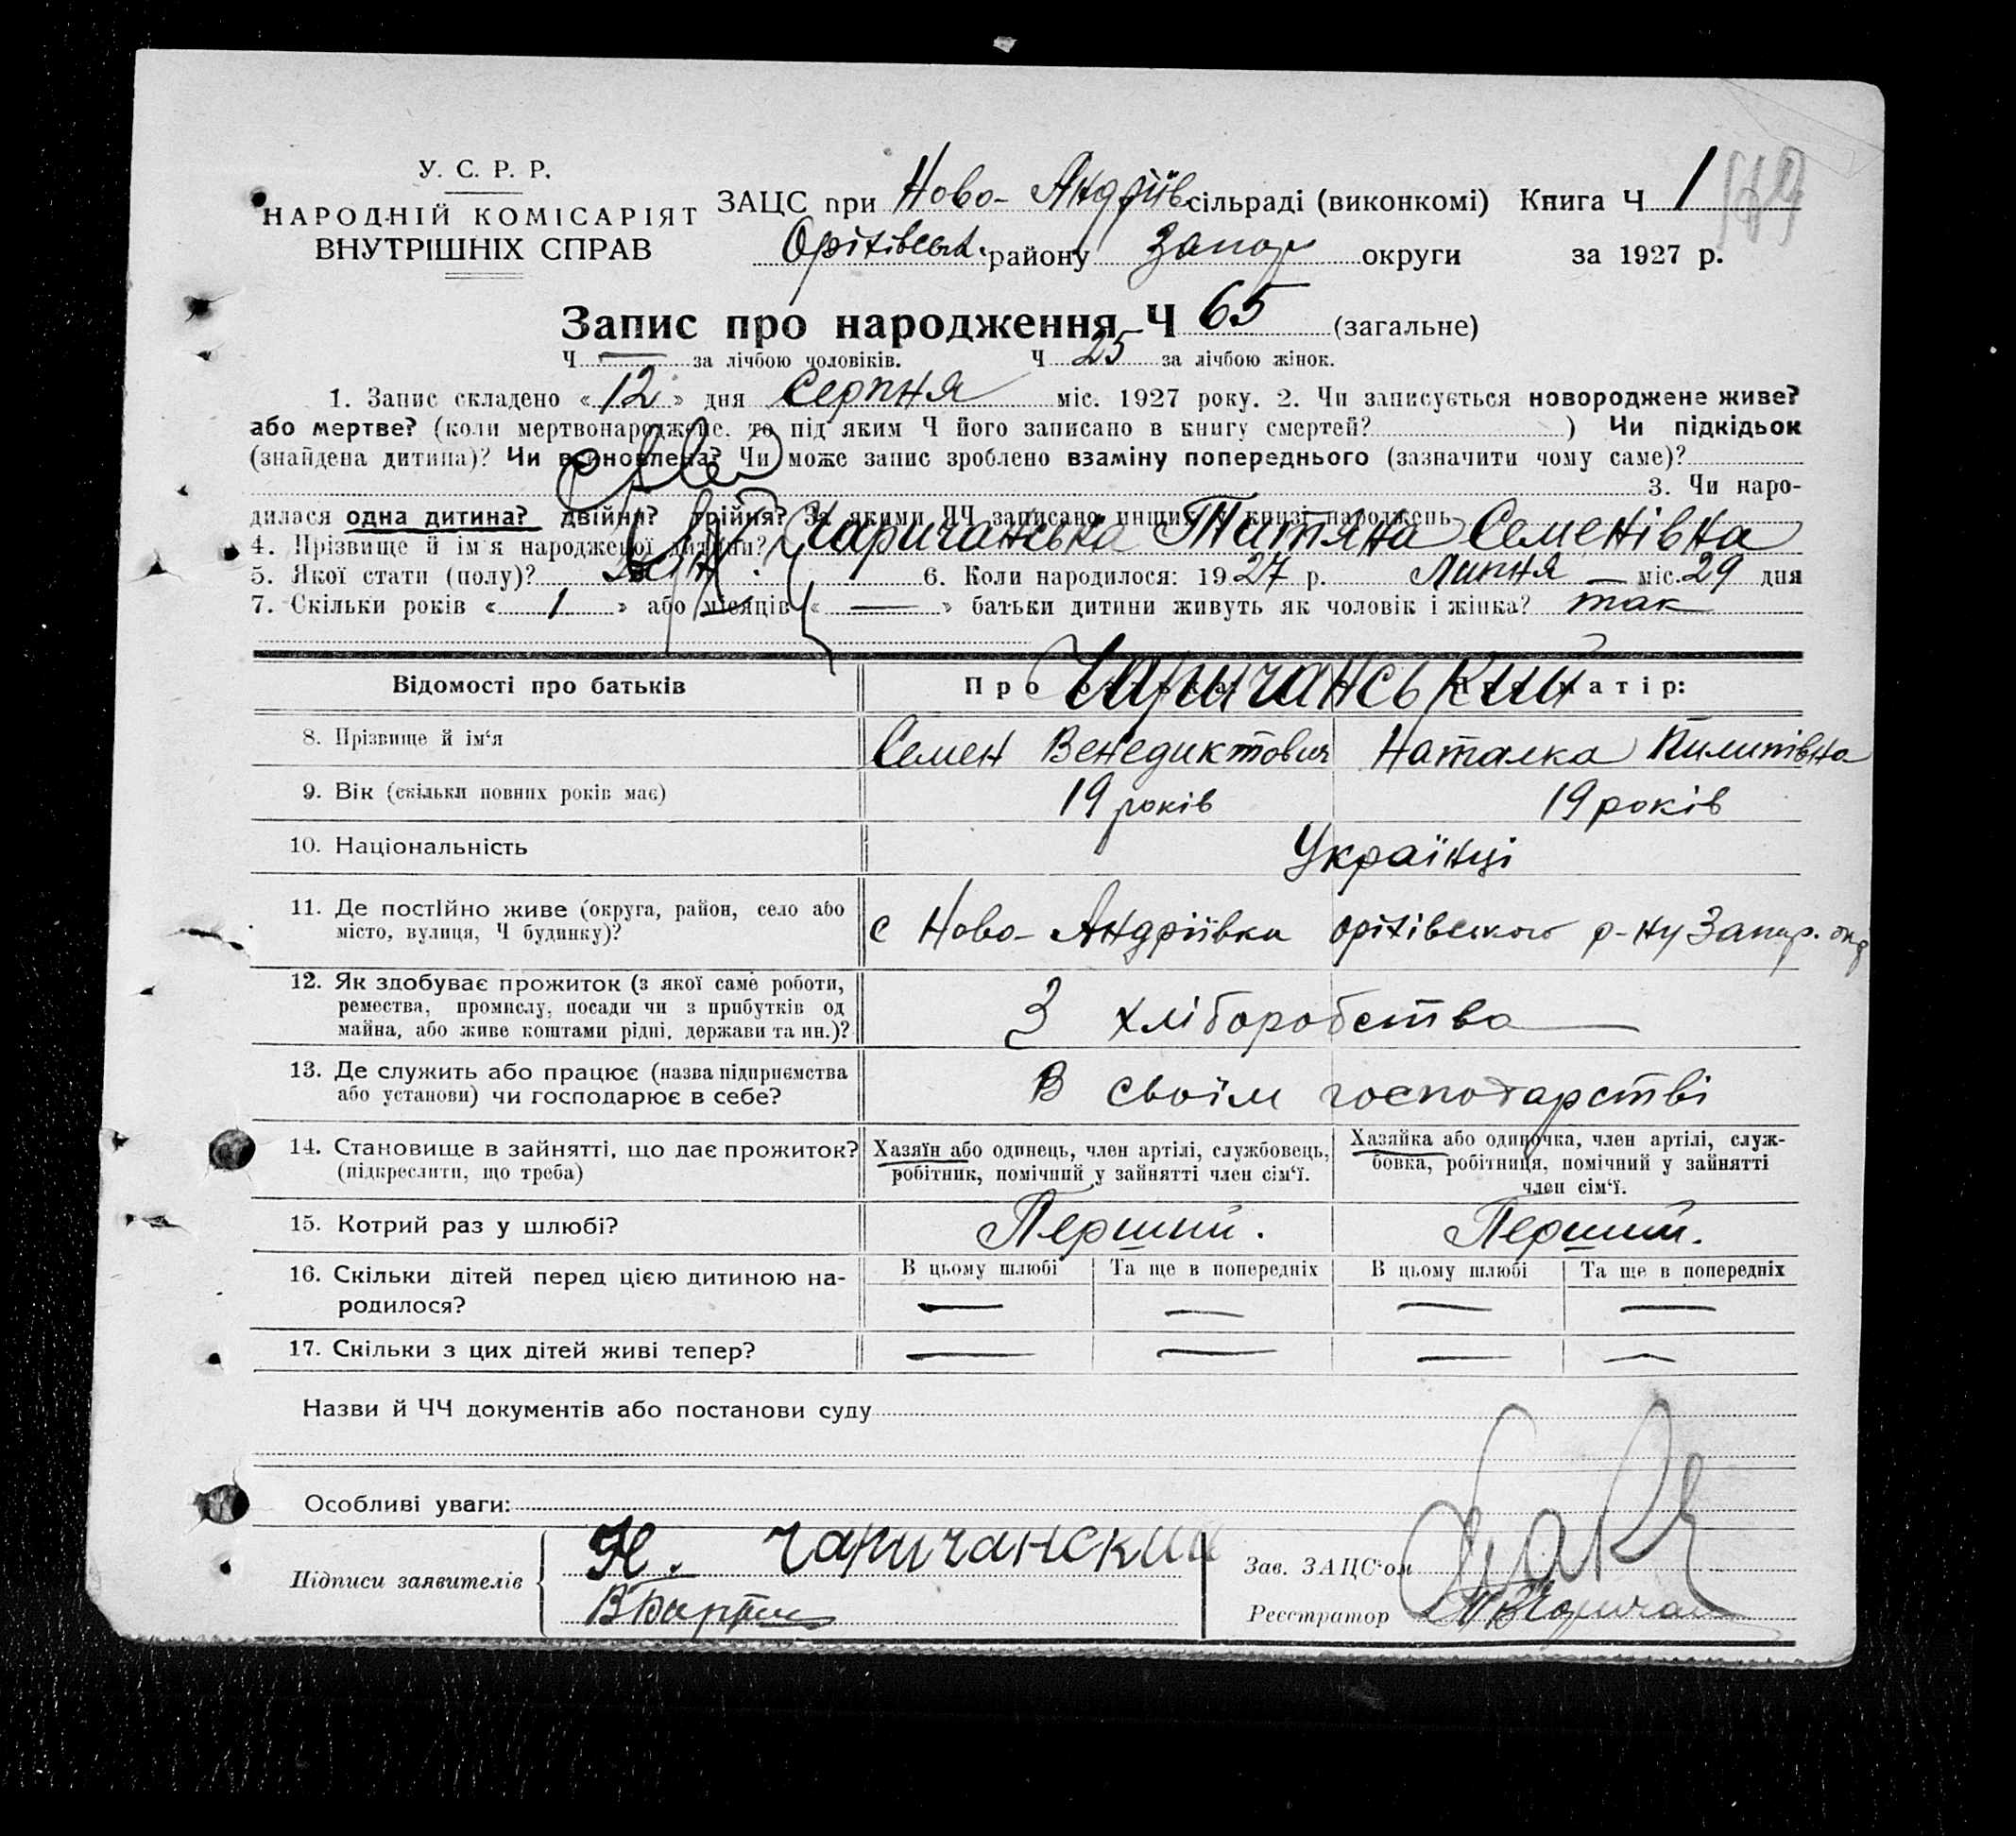 У. С. Р. Р.
НАРОДНІЙ КОМІСАРІЯТ
ВНУТРІШНІХ СПРАВ
ЗАЦС при Ново-Андріїв сільраді (виконкомі) Книга Ч 1
Оріхівськ. району Запор округи за 1927 р.
Запис про народження Ч 65 (загальне)
Ч — за лічбою чоловіків. Ч 25 за лічбою жінок.
1. Запис складено «12» дня Серпня міс. 1927 року. 2. Чи записується новороджене живе?
або мертве? (коли мертвонароджене, то під яким Ч його записано в книгу смертей? ) Чи підкідьок
(знайдена дитина)? Чи всиновлена? Чи може запис зроблено взаміну попереднього (зазначити чому саме)?
3. Чи наро-
дилася одна дитина? двійня? трійня? За якими ЧЧ записано инших в книзі народжень
4. Прізвище й ім'я народженої дитини? Чаричанська Титяна Семенівна
5. Якої стати (полу)? 6. Коли народилося: 1927 р. Липня — міс. 29 дня
7. Скільки років «1» або місяців «—» батьки дитини живуть як чоловік і жінка? так
Відомості про батьків Про Чаричанський матір:
8. Прізвище й ім'я Семен Венедиктович Наталка Пилипівна
9. Вік (скільки повних років має) 19 років 19 років
10. Національність Українці
11. Де постійно живе (округа, район, село або
місто, вулиця, Ч будинку)? с Ново-Андріївка оріхівського р-ну Запор. окр
12. Як здобуває прожиток (з якої саме роботи,
ремества, промислу, посади чи з прибутків од
майна, або живе коштами рідні, держави та ин.)? З хліборобства
13. Де служить або працює (назва підприємства
або установи) чи господарює в себе? В своїм господарстві
14. Становище в зайнятті, що дає прожиток?
(підкреслити, що треба)
Хазяїн або одинець, член артілі, службовець,
робітник, помічний у зайнятті член сім'ї.
Хазяйка або одиночка, член артілі, служ-
бовка, робітниця, помічний у зайнятті
член сім'ї.
15. Котрий раз у шлюбі? Перший. Перший.
16. Скільки дітей перед цією дитиною на-
родилося?
В цьому шлюбі Та ще в попередніх В цьому шлюбі Та ще в попередніх
— — — —
17. Скільки з цих дітей живі тепер? — — — —
Назви й ЧЧ документів або постанови суду
Особливі уваги:
Підписи заявителів Н. Чаричанский
Зав. ЗАЦС'ом
Реєстратор